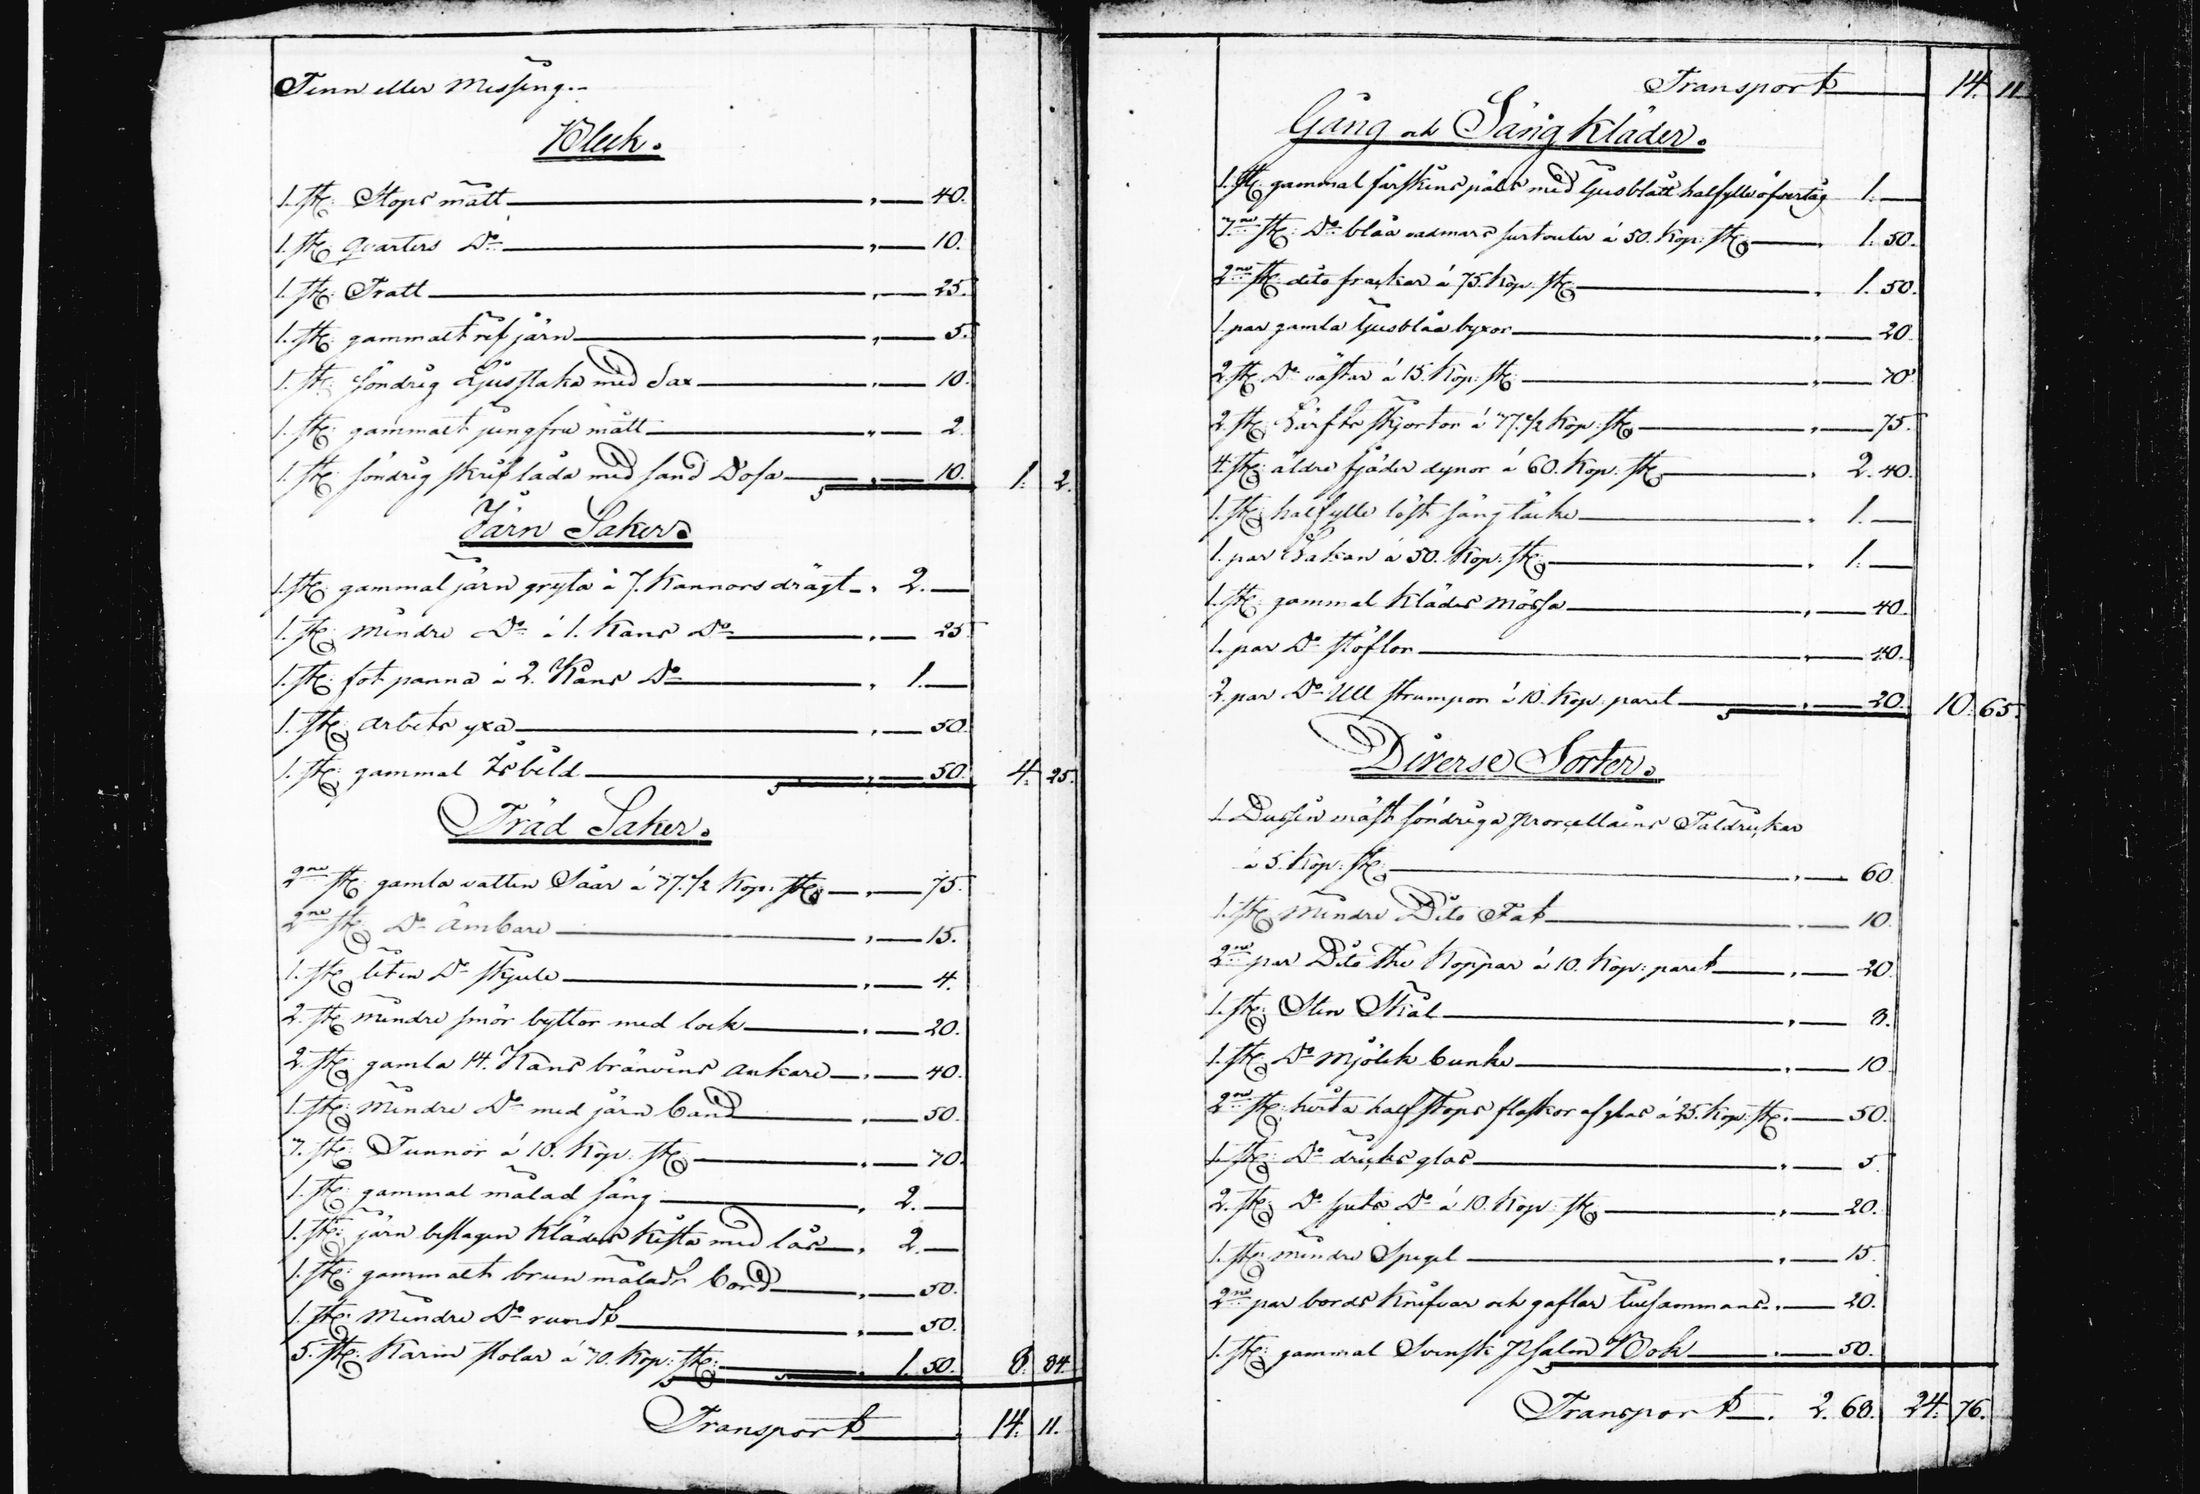 Tenn eller Messing.-
Bleck.
1. st: Stops mått " 40.
1. st: qvarters Do " 10.
1. st: Tratt " 25.
1. st: gammalt ref järn " 5.
1. st: söndrig Ljusstaka med Sax " 10.
1. st: gammalt jungfru mått " 2.
1. st: söndrig skrif låda med sand Dosa " 10. 1. 2.
Järn Saker.
1. st: gammal järn gryta à 7. Kannors drägt " 2.
1. st: mindre Do à 1. Kans Do " 25
1. st: fot panna à 2. Kans Do " 1.
1. st: arbets yxa " 50.
1. st: gammal Isbild " 50. 4. 25.
Träd Saker.
2ne st: gamla vatten Såar à 37.1/2 Kop: st: " 75.
2ne st: Do Ämbare " 15.
1. st: liten Do skjule " 4.
2. st: mindre smör byttor med lock " 20.
2. st: gamla 14. Kans bränvins ankare " 40.
1. st: mindre Do med järn band " 50.
7. st: Tunnor à 10. Kop. st: " 70.
1. st: gammal målad säng " 2.
1. st: järn beslagen Kläders Kista med lås " 2.
1. st: gammalt brun måladt bord " 50.
1. st: mindre Do rundt " 50.
5. st: Karm stolar à 30. Kop: st: " 1. 50. 8. 84.
Transport 14. 11.
Transport 14. 11
Gång och Säng Kläder.
1. st: gammal fårskins päls med Ljusblått halfylle öfvertåg 1.
3ne st: Do blåa vadmars surtouter à 50. Kop: st: " 1. 50.
2ne st: dito frackar à 75. Kop. st: " 1. 50.
1. par gamla ljusblåa byxor " 20
2. st: Do västar à 15. Kop: st: " 30
2. st: Lärfts skjortor à 37.1/2 Kop: st: " 75.
4. st: äldre fjäder dynor à 60. Kop: st: " 2. 40.
1. st: halfylle löst säng täcke " 1.
1. par Lakan à 50. Kop: st: " 1.
1. st: gammal Kläds mössa " 40.
1. par Do stöflor " 40.
2. par Do Ull strumpor à 10. Kop: paret " 20. 10. 65.
Diverse Sorter.
1. Dussin mäst söndriga porcellains Taldrickar
à 5. Kop: st: " 60
1. st: mindre Dito Fat " 10.
2ne par Dito The Koppar à 10. Kop: paret " 20.
1. st: Sten Skål " 8.
1. st: Do Mjölk bunke " 10
2ne st: hvita half stops flaskor af glas à 25. Kop: st: " 50.
1. st: Do dricks glas " 5
2. st: Do Do à 10. Kop: st: " 20.
1. st: mindre Spegel " 15
2ne par bords Knifvar och gaflar tillsammans " 20.
1. st: gammal Svensk Psalm Bok " 50.
Transport " 2. 68. 24. 76.